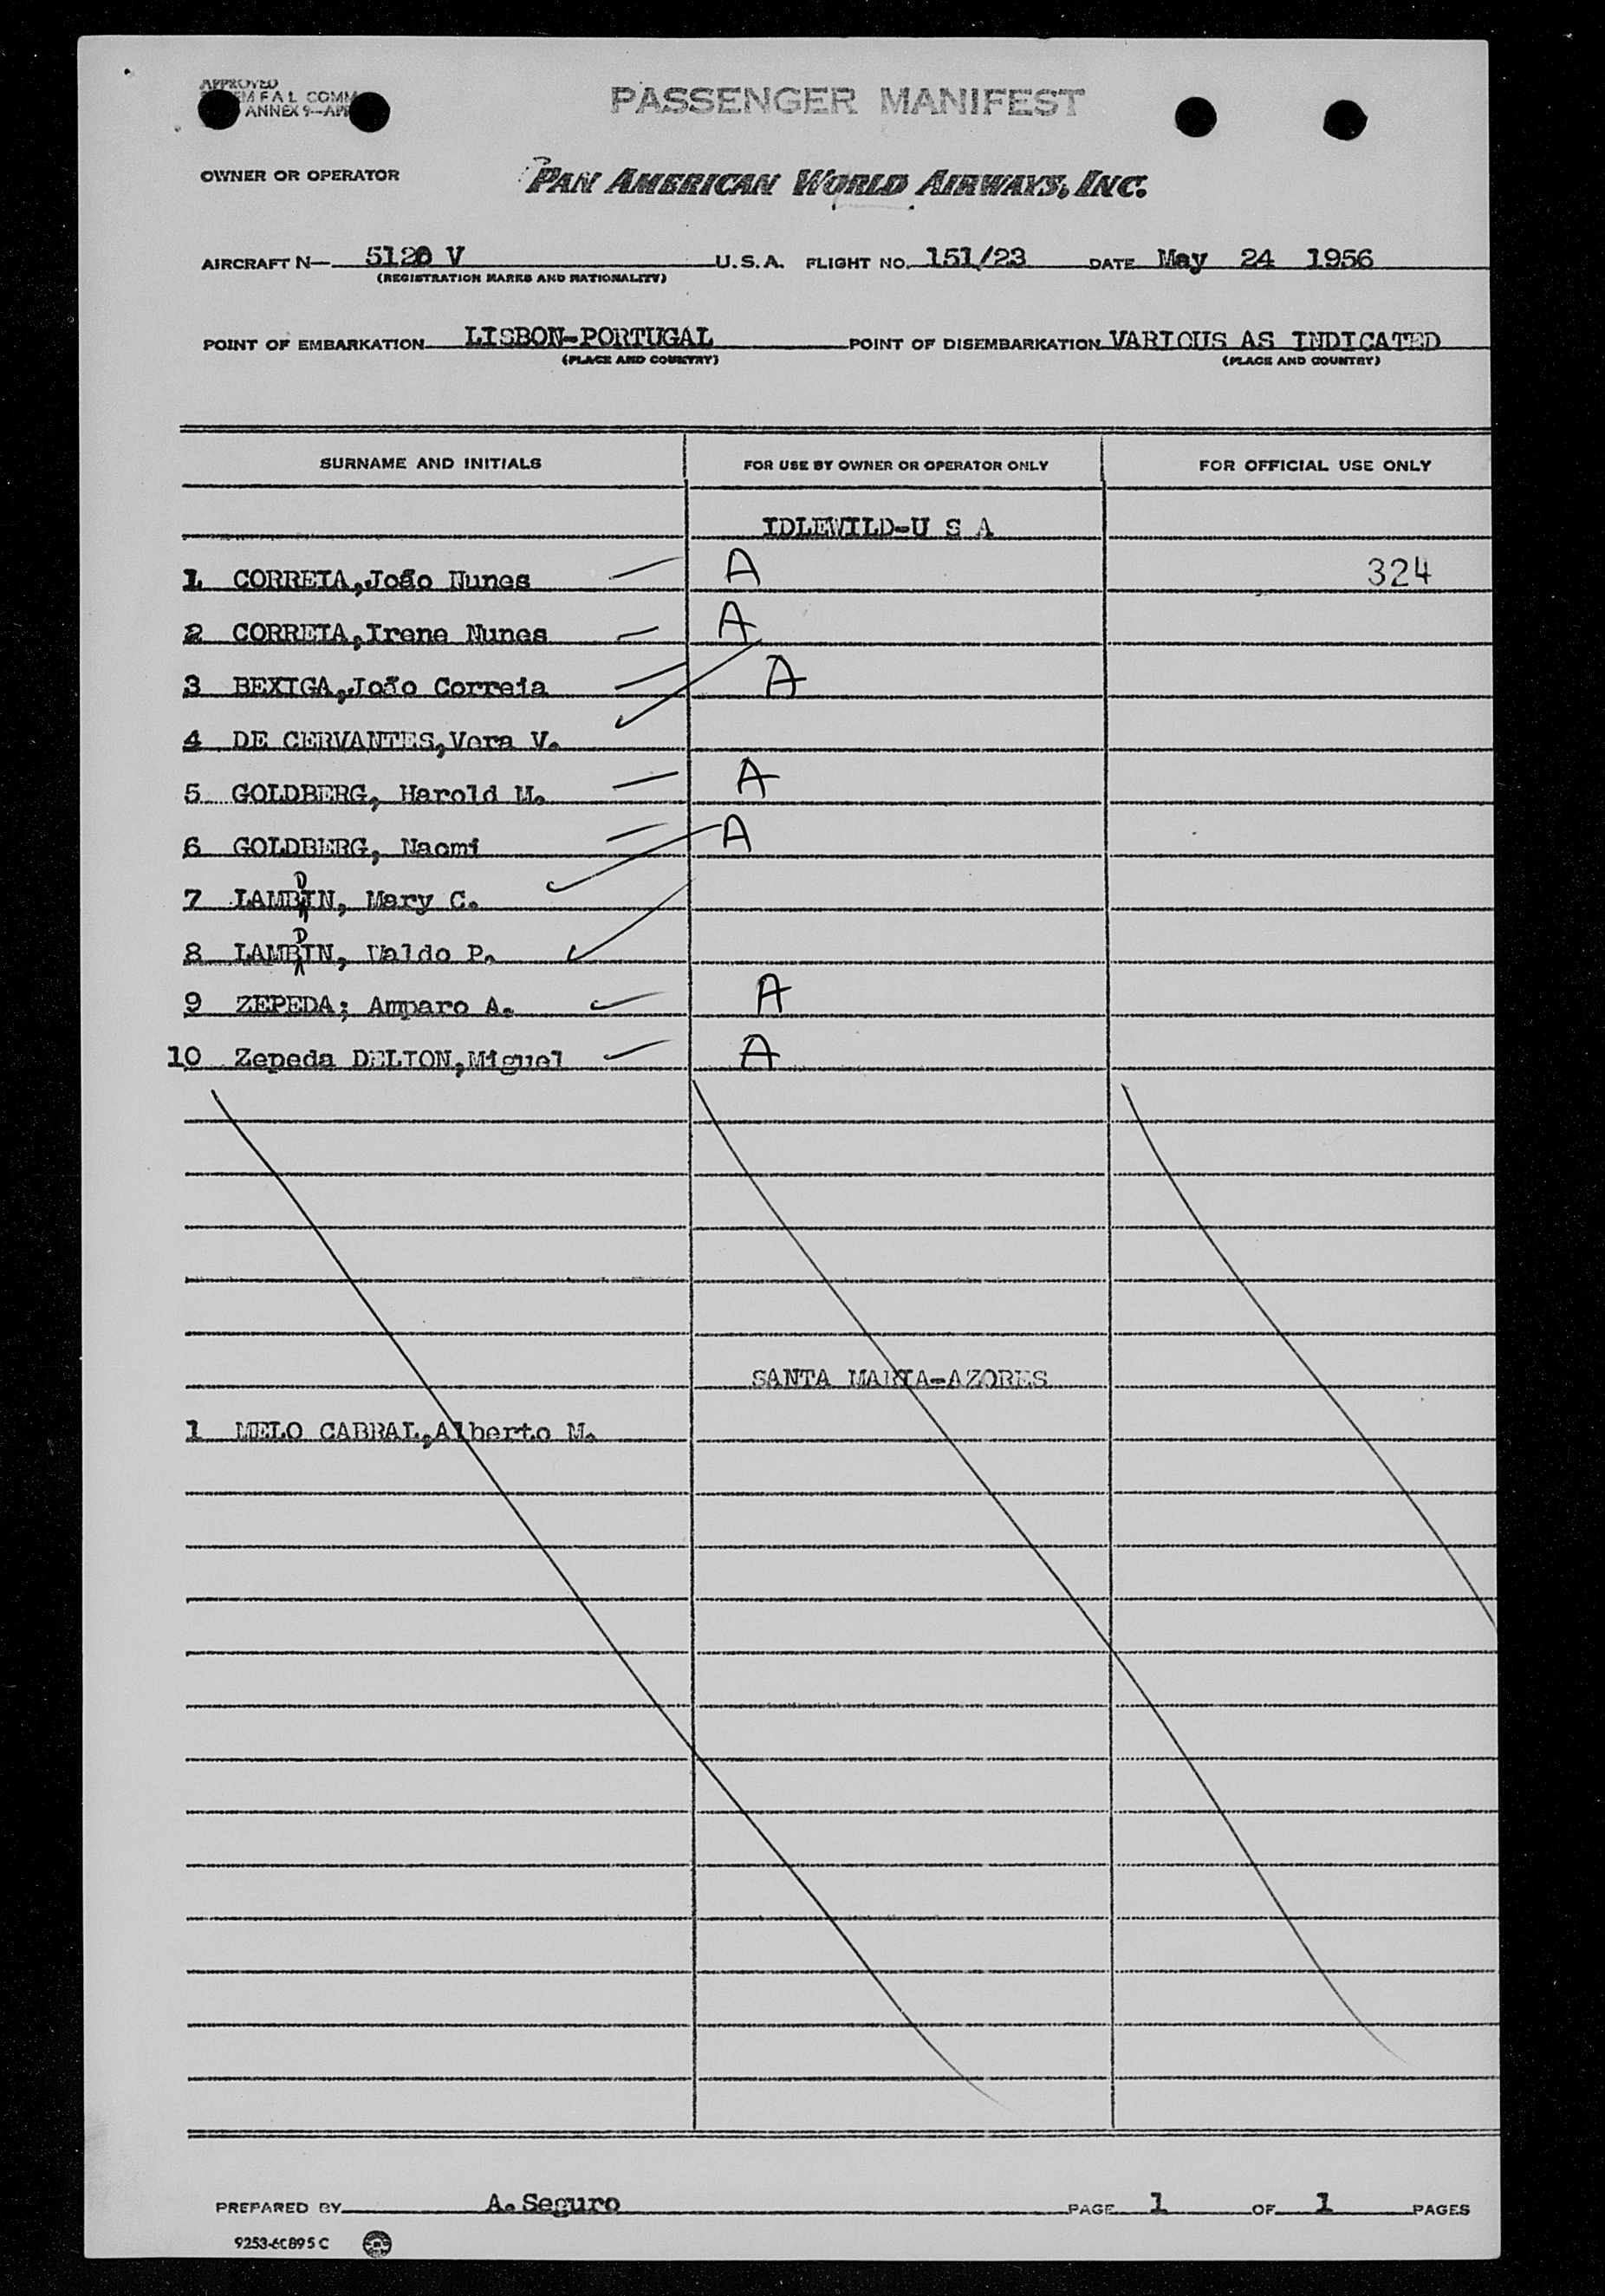 APPROVED
EM F A L COMM
ANNEX 9—AP
PASSENGER MANIFEST
OWNER OR OPERATOR PAN AMERICAN WORLD AIRWAYS, INC.
AIRCRAFT N— 5120 V U.S.A. FLIGHT NO. 151/23 DATE May 24 1956
(REGISTRATION MARKS AND NATIONALITY)
POINT OF EMBARKATION LISBON-PORTUGAL POINT OF DISEMBARKATION VARIOUS AS INDICATED
(PLACE AND COUNTRY) (PLACE AND COUNTRY)
SURNAME AND INITIALS FOR USE BY OWNER OR OPERATOR ONLY FOR OFFICIAL USE ONLY
IDLEWILD-U S A
1 CORREIA,João Nunes A 324
2 CORREIA,Irene Nunes A
3 BEXIGA,João Correia A
4 DE CERVANTES,Vera V.
5 GOLDBERG, Harold M. A
6 GOLDBERG, Naomi A
D
7 LAMBIN, Mary C.
D
8 LAMBIN, Waldo P.
9 ZEPEDA; Amparo A. A
10 Zepeda DELTON,Miguel A
SANTA MARIA-AZORES
1 MELO CABRAL,Alberto M.
PREPARED BY A. Seguro PAGE 1 OF 1 PAGES
9253-6C895 C